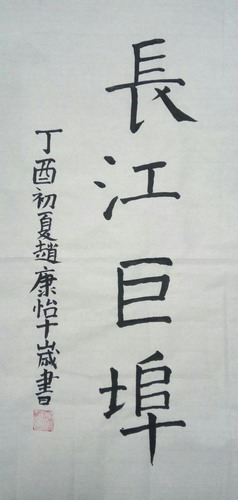 長江巨埠
丁酉初夏趙康怡十歲書